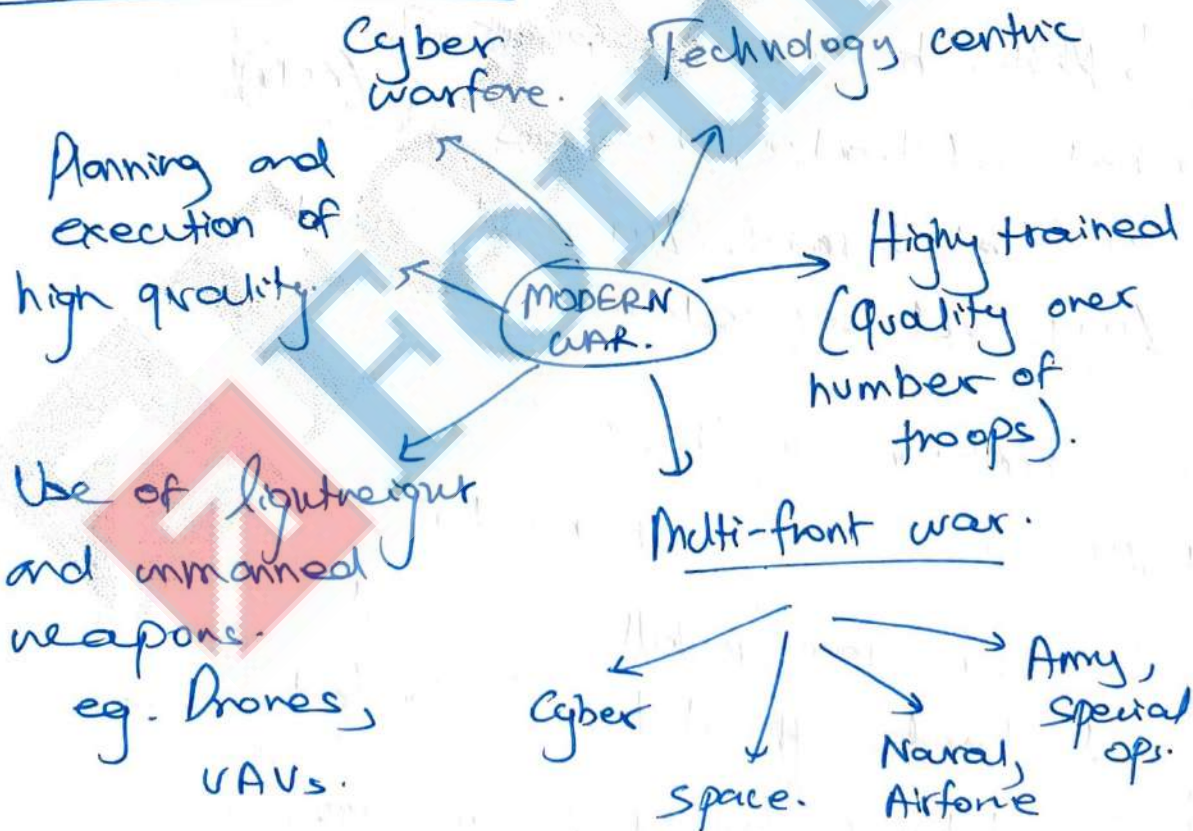 Cyber
warfare.
Technology centric
Planning and
execution of
high quality.
MODERN
WAR.
Highy trained
(Quality over
number of
troops).
Use of lightweight
and unmanned
weapons.
eg. Drones,
UAVs.
Multi-front war.
Cyber
space.
Naval,
Airforce
Army,
special
ops.
Foru